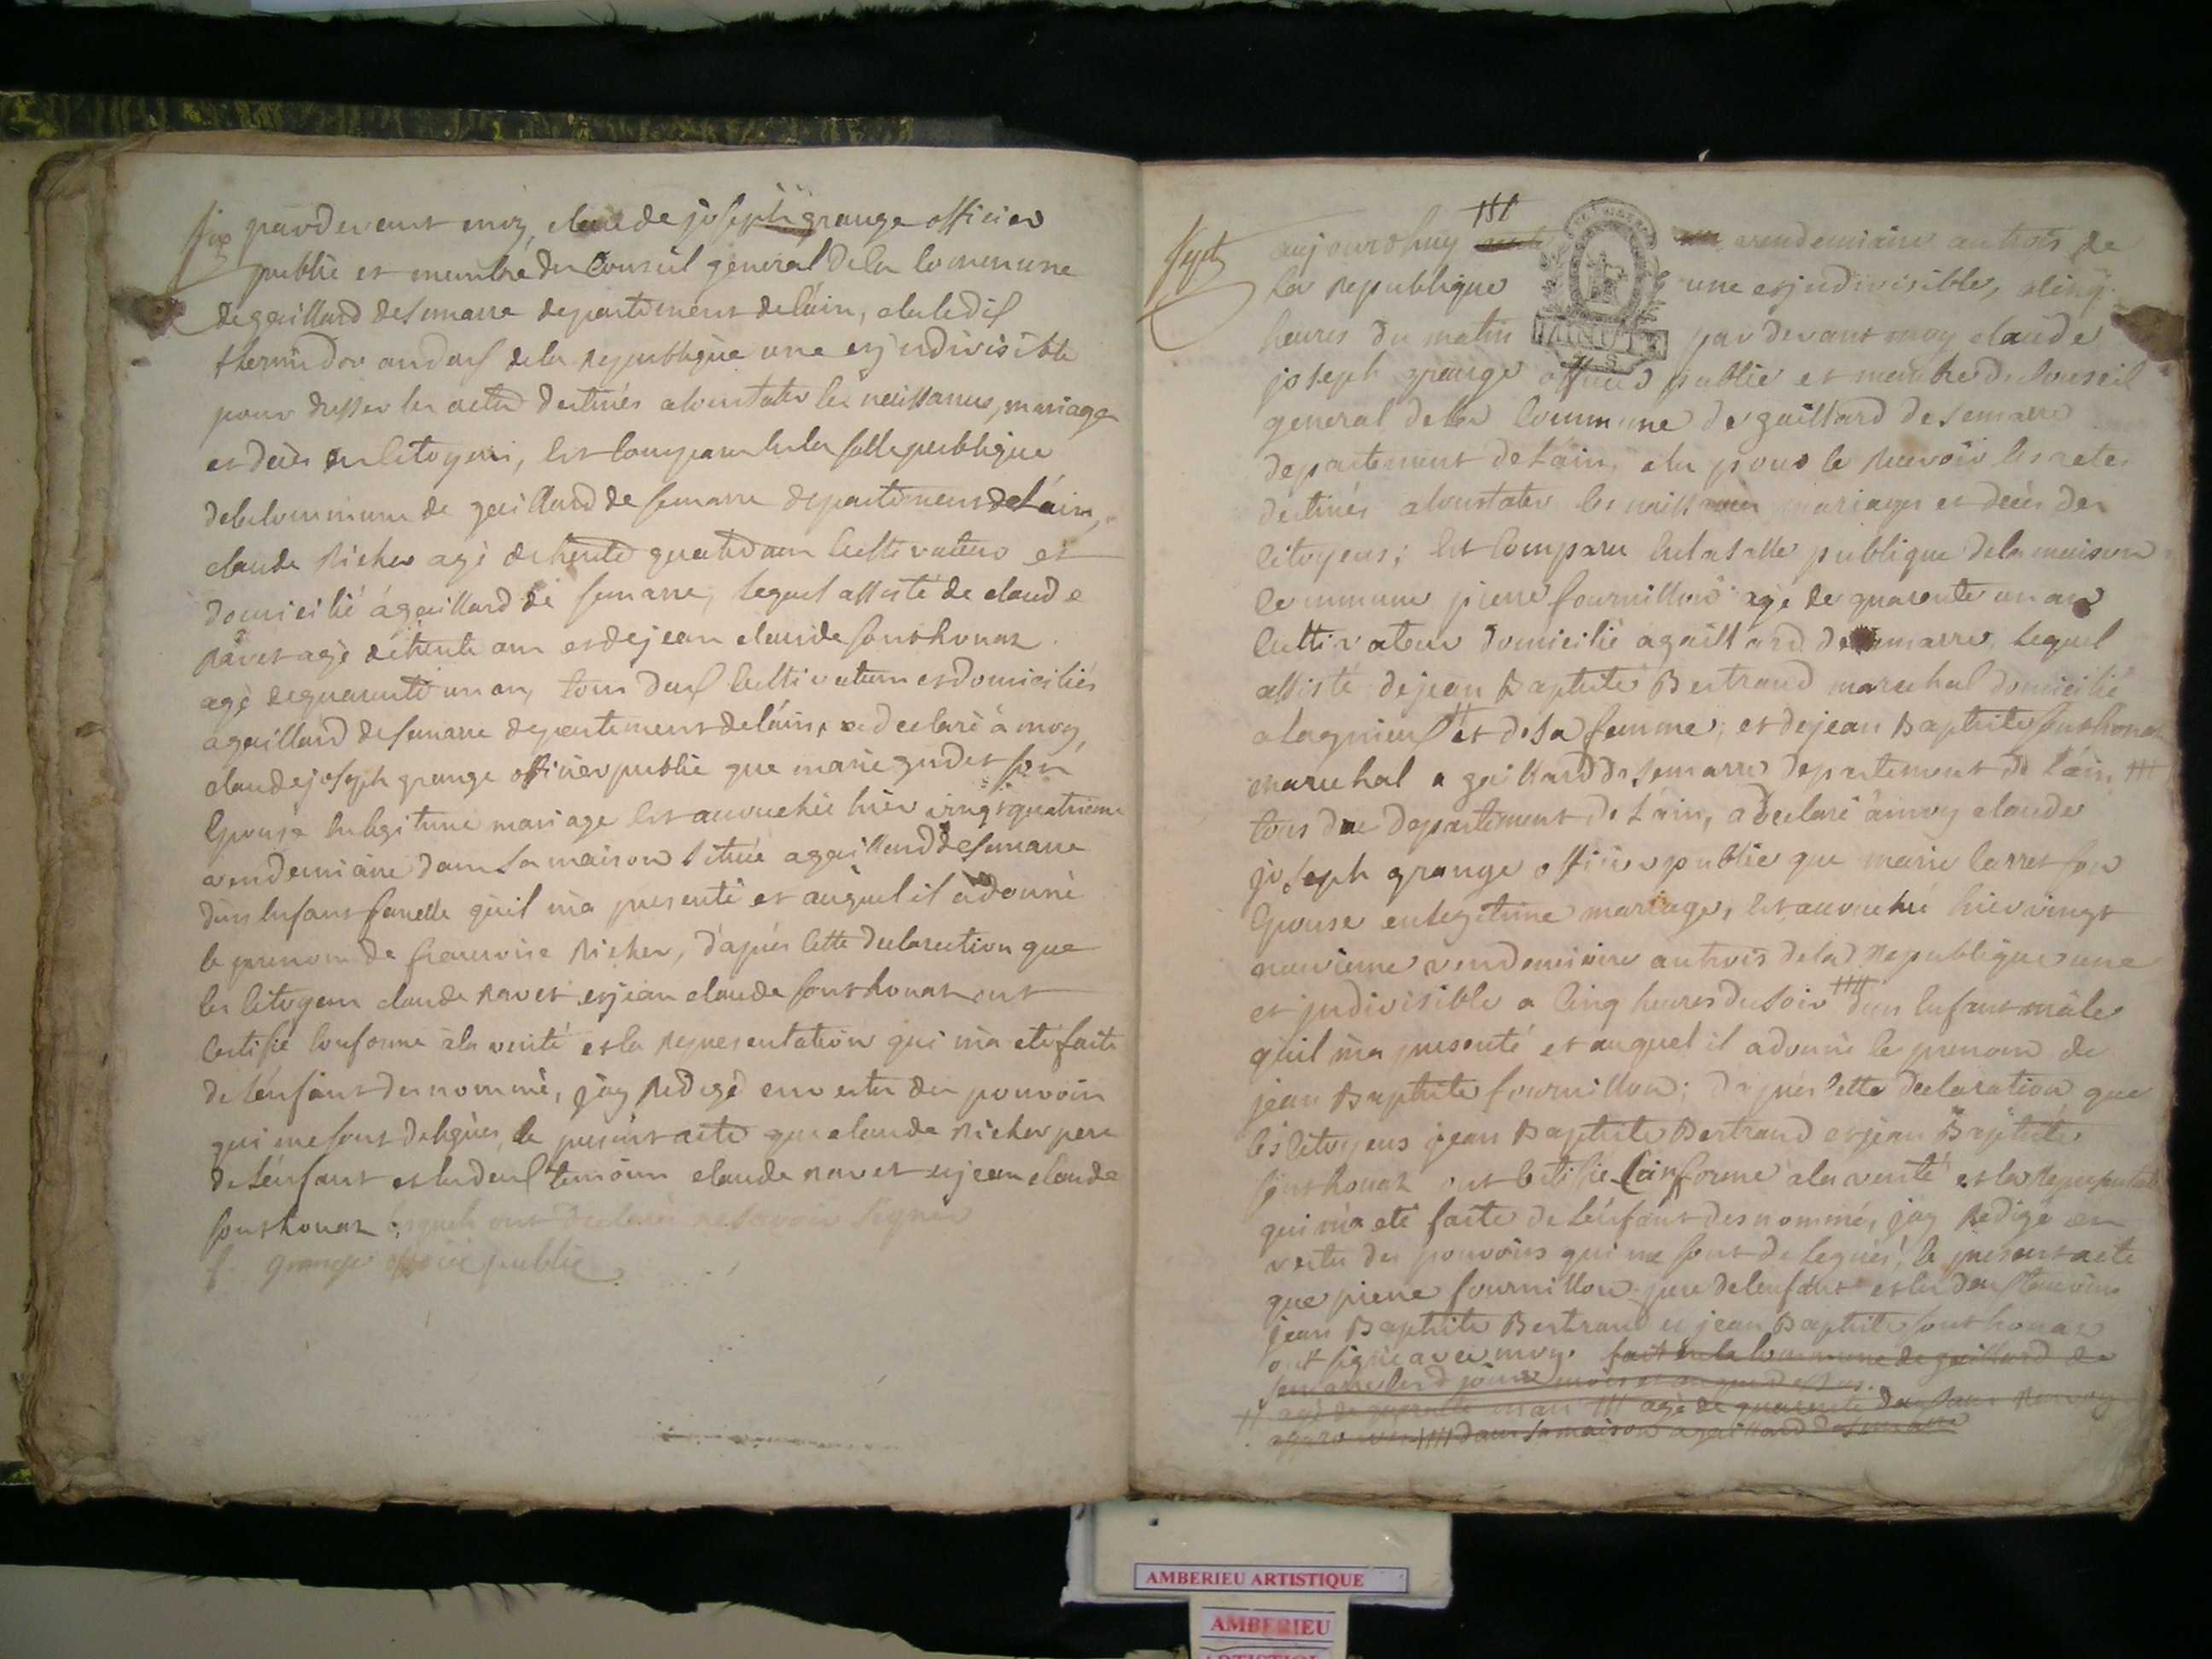 six
pardevant moy, claude joseph grange officier
public et membre du Conseil general dela Commune
de gaillard desemarre departement deláin, elu le dix
thermidor an deux dela Republique une et jndivisible
pour dresser les actes destinés a Constater les naissances, mariages
et decès des Citoyens, est Comparu enla salle publique
dela Commune de gaillard de semarre departement deLáin,
claude Richer agé de trente quatre ans Cultivateur et
domicilié á gaillard de semarre, lequel assisté de claude
Ravet agé de trente ans et de jean claude fonthonas
agé de quarante un an, tous deux Cultivateurs et domiciliés
agaillard desemarre departement deláin, a declaré à moy
claude joseph grange officier public que marie son
Epouse en legitime mariage est accouchée hier vingt quatrieme
vendemiaire dans sa maison située agaillard desemarre
d'un Enfant femelle qu'il m'a presenté et auquel il a donné
le prenom de francoise Richer, d'après Cette declaration que
les Citoyens claude Ravet et jean claude fonthonas ont
Certifié Conforme à la verité et la Representation qui m'a eté faite
de lénfant denommé, jay Redigé en vertu des pouvoirs
qui me sont delegués, le present acte que claude Richer pere
de Lénfant et les deux temoins claude ravet et jean claude
fonthonas lesquels ont declaré ne savoir signer
grange officié public
Sept
aujourdhuy ttt vendemiaire an trois de
la Republique une et jndivisible, a Cinq
heures du matin MINUTE par devant moy claude
joseph grange officier public et membre du Conseil
general dela Commune de gaillard de semarre
departement deLain, elu pour le Recevoir les actes
destinés a Constater les naissances mariages et decès des
Citoyens; est Comparu enla salle publique dela maison
Commune pierre fournillon agé de quarante un ans
Cultivateur domicilié agaillard de semarre, lequel
assisté de jean Baptiste Bertrand marechal domicilié
a Lagnieux tt et de sa femme, et dejean Baptiste fonthonas
marechal a gaillard de semarre departement de Láin ttt
tous deux departement de Láin, a declaré à moy claude
joseph grange officier public que marie Carret son
Epouse en legitime mariage, est accouchée hier vingt
neuvieme vendemiaire an trois dela Republique une
et jndivisible a Cinq heures du soir tttt d'un Enfant mâle
qu'il m'a presenté et auquel il a donné le prenom de
jean Baptiste fournillon; d'après Cette declaration que
les Citoyens jean Baptiste Bertrand et jean Baptiste
fonthonas ont Certifié Conforme a la verité et la Representation
qui m'a eté faite de Lénfant denommé, jay Redigé en
vertu des pouvoirs qui me sont delegués, le present acte
que pierre fournillon pere de lenfant et les deux temoins
jean Baptiste Bertrand et jean Baptiste fonthonas
ont signé avec moy. fait en la Commune de gaillard de
semarre les d jour mois et an que dessus.
tt agé de quarante un an ttt agé de quarante deux ans Renvoy
approuvé tttt dans sa maison agaillard desemarre
AMBERIEU ARTISTIQUE
AMBERIEU